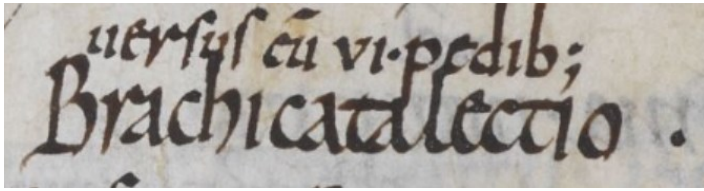 uersus cū vi·pedib;
Brachicatalectio .